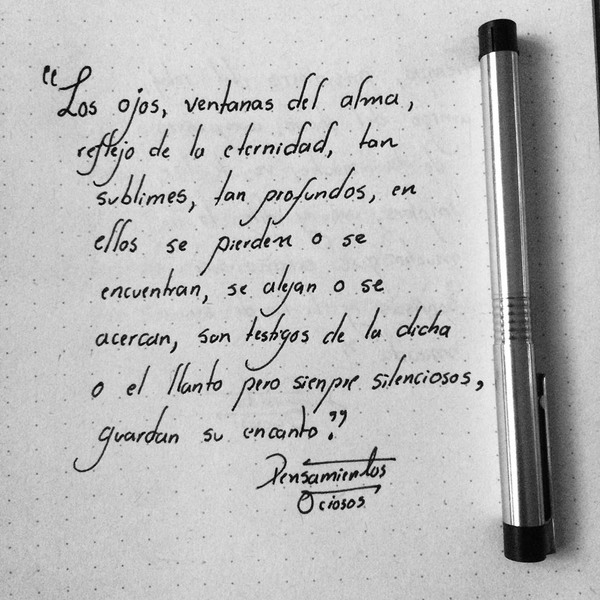 "Los ojos, ventanas del alma,
reflejo de la eternidad, tan
sublimes, tan profundos, en
ellos se pierden o se
encuentran, se alejan o se
acercan, son testigos de la dicha
o el llanto pero sienpre silenciosos,
guardan su encanto."
Pensamientos
Ociosos